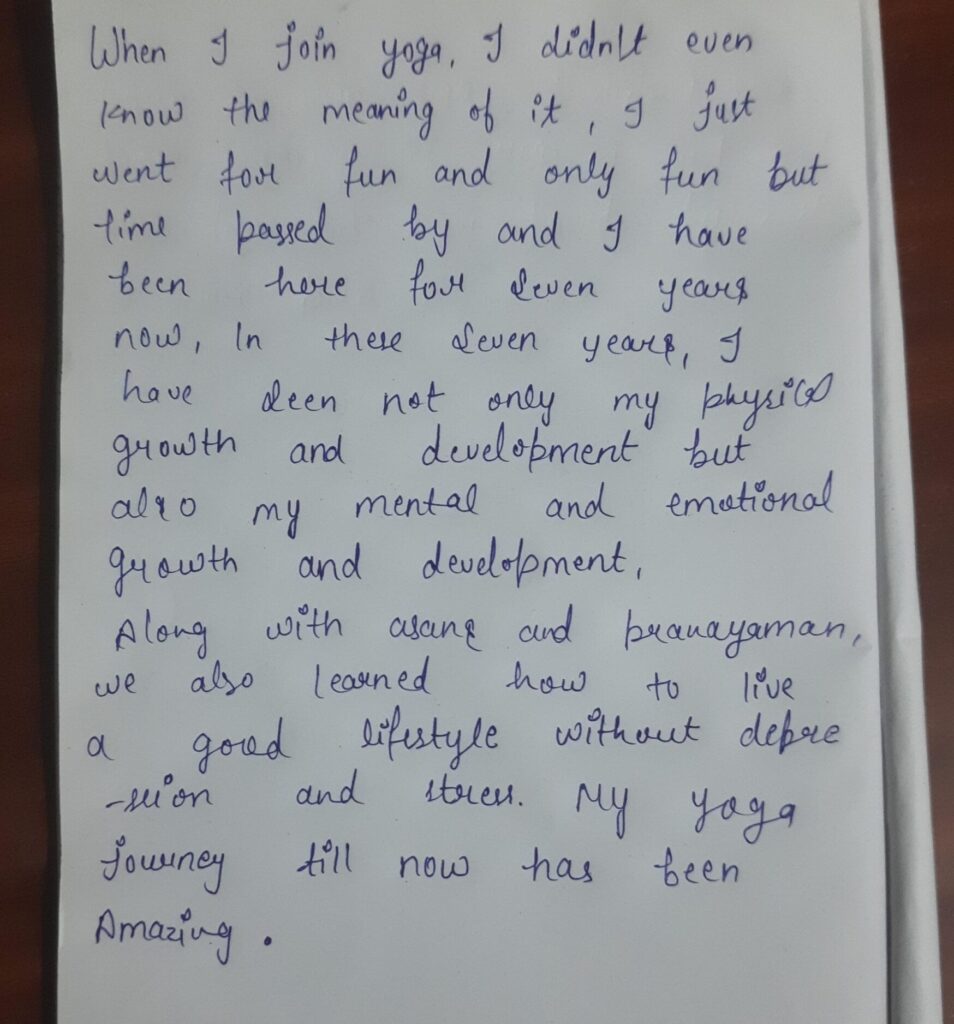 When I join yoga, I didn't even
know the meaning of it, I just
went for fun and only fun but
time passed by and I have
been here for seven years
now, In these seven years, I
have seen not only my physical
growth and development but
also my mental and emotional
growth and development,
Along with asang and pranayaman,
we also learned how to live
a good lifestyle without depre
-ssion and stress. My yoga
journey till now has been
Amazing.